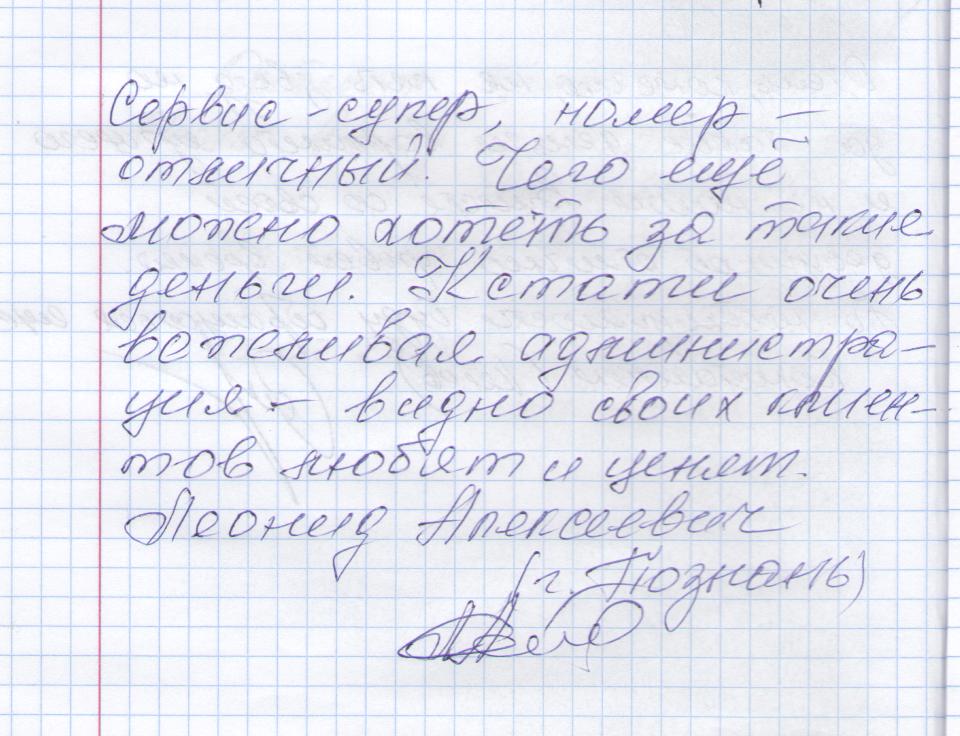 Сервис - супер, номер -
отличный. Чего ещё
можно хотеть за такие
деньги. Кстати очень
вежливая администра-
ция - видно своих клиен-
тов любят и ценят.
Леонид Алексеевич
(г. Познань)